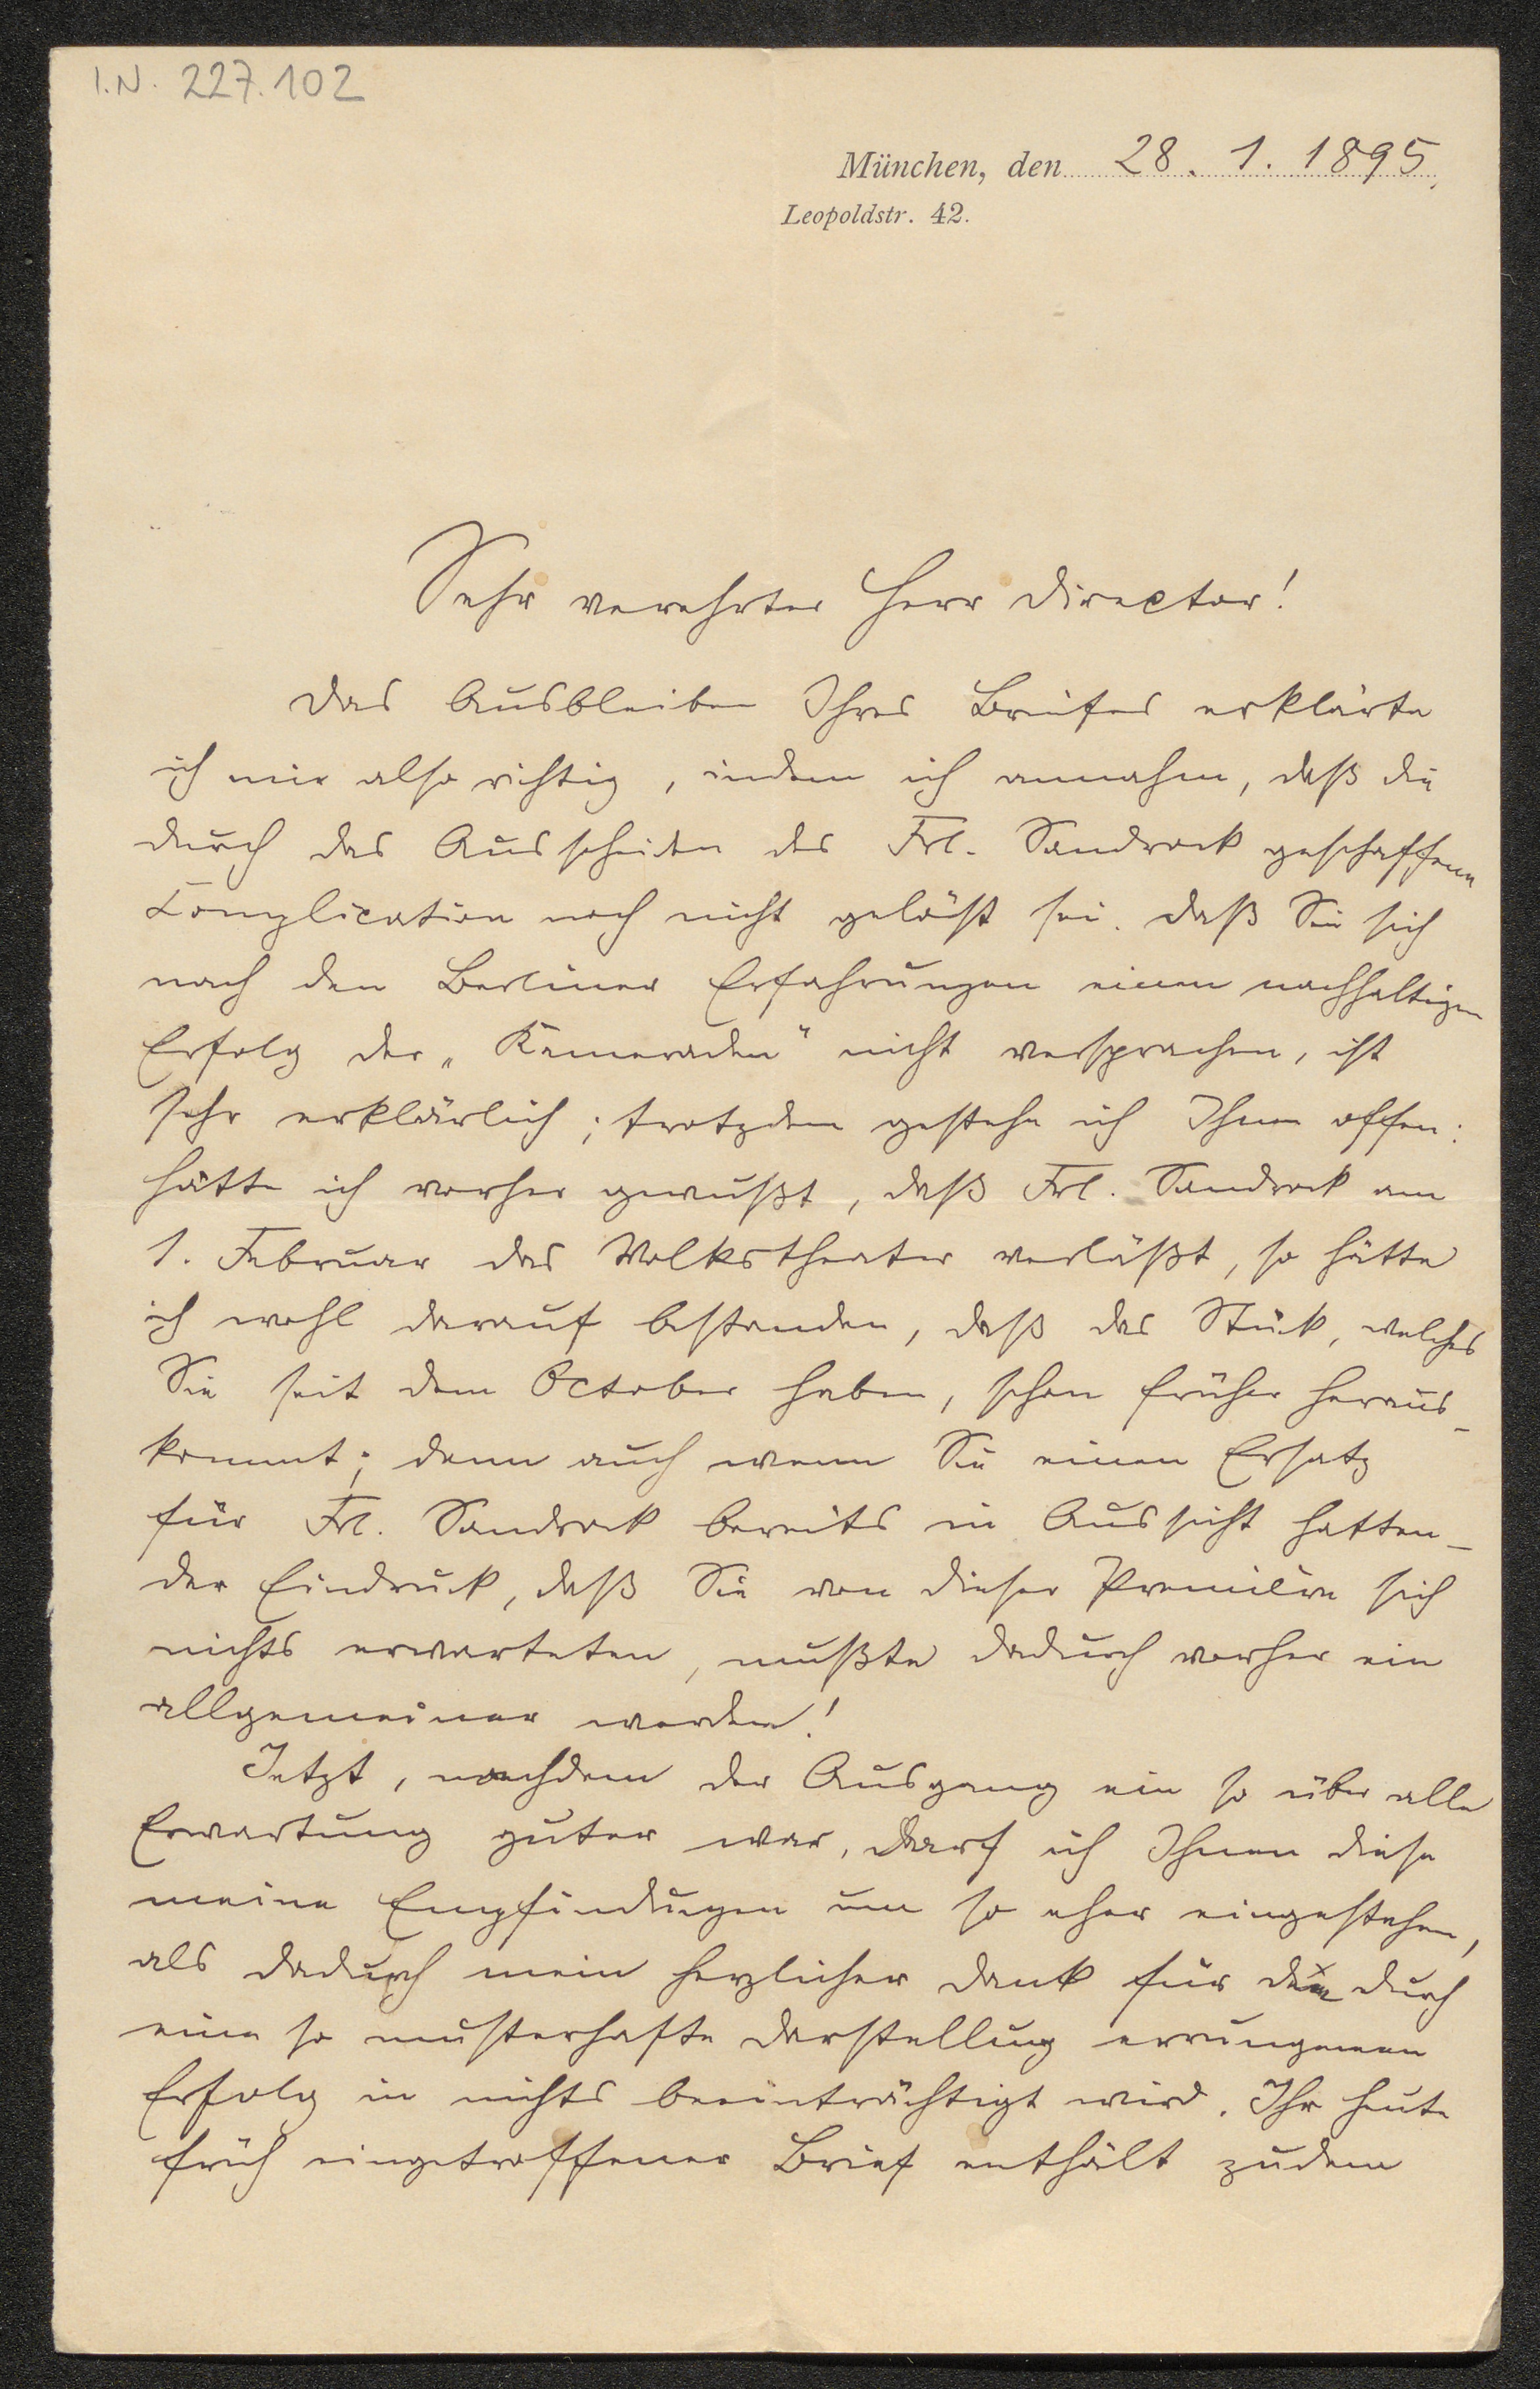 I.N. 227.102
München, den 28. 1. 1895.
Leopoldstr. 42.
Sehr verehrter Herr Director!
Das Ausbleiben Ihres Briefes erklärte
ich mir also richtig, indem ich annahm, daß die
durch das Ausscheiden des Frl. Sandrock geschaffene
Complication noch nicht gelöst sei. Daß Sie sich
nach den Berliner Erfahrungen einen nachhaltigen
Erfolg der „Kameraden" nicht versprachen, ist
sehr erklärlich; trotzdem gestehe ich Ihnen offen:
hätte ich vorher gewußt, daß Frl. Sandrock am
1. Februar das Volkstheater verläßt, so hätte
ich wohl darauf bestanden, daß das Stück, welches
Sie seit dem October haben, schon früher heraus-
kommt; denn auch wenn Sie einen Ersatz
für Frl. Sandrock bereits in Aussicht hatten –
der Eindruck, daß Sie von dieser Premiere sich
nichts erwarteten, mußte dadurch vorher ein
allgemeiner werden!
Jetzt, nachdem der Ausgang ein so über alle
Erwartung guter war, darf ich Ihnen diese
meine Empfindungen um so eher eingestehen,
als dadurch mein herzlicher Dank für den durch
eine so musterhafte Darstellung errungenen
Erfolg in nichts beeinträchtigt wird. Ihr heute
früh eingetroffener Brief enthält zudem